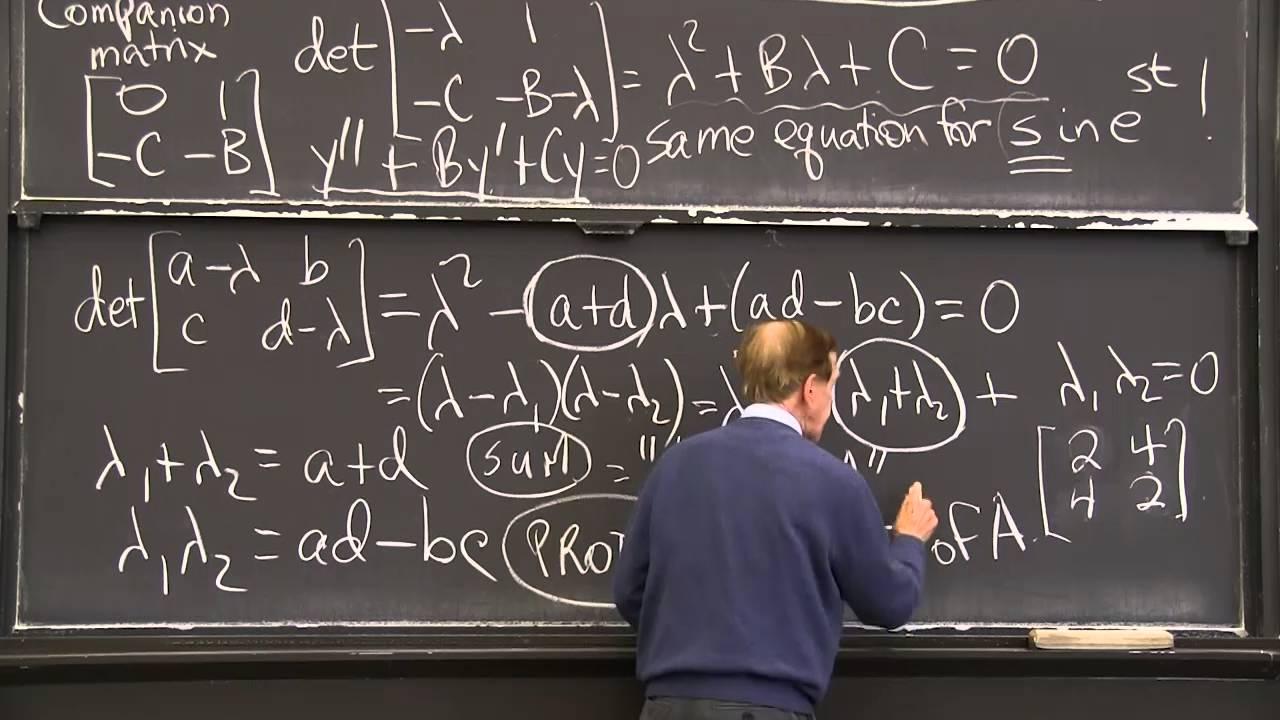 Companion
matrix
[0 1
-C -B]
det [-λ 1
-C -B-λ] = λ² + Bλ + C = 0
y'' + By' + Cy = 0
same equation for s in e^st!
det [a-λ b
c d-λ] = λ² - (a+d)λ + (ad-bc) = 0
= (λ-λ₁)(λ-λ₂) = λ (λ₁+λ₂) + λ₁λ₂=0
λ₁+λ₂ = a+d SUM = " A"
λ₁λ₂ = ad-bc of A
[2 4
4 2]